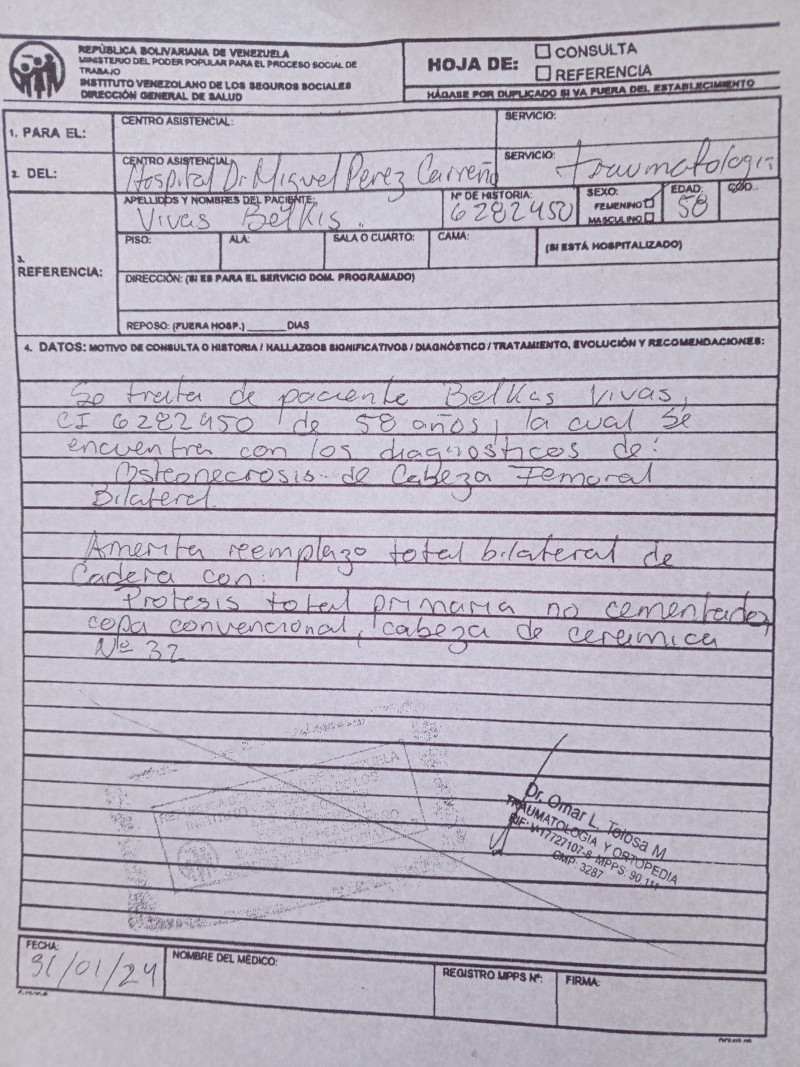 REPÚBLICA BOLIVARIANA DE VENEZUELA
MINISTERIO DEL PODER POPULAR PARA EL PROCESO SOCIAL DE
TRABAJO
INSTITUTO VENEZOLANO DE LOS SEGUROS SOCIALES
DIRECCIÓN GENERAL DE SALUD
HOJA DE: CONSULTA
REFERENCIA
HÁGASE POR DUPLICADO SI VA FUERA DEL ESTABLECIMIENTO
1. PARA EL: CENTRO ASISTENCIAL: SERVICIO:
2. DEL: CENTRO ASISTENCIAL: Hospital Dr Miguel Perez Carreño SERVICIO: traumatologia
3. REFERENCIA:
APELLIDOS Y NOMBRES DEL PACIENTE: Vivas Belkis. Nº DE HISTORIA: 6282450 SEXO: FEMENINO MASCULINO EDAD: 58 COD.:
PISO: ALA: SALA O CUARTO: CAMA: (SI ESTÁ HOSPITALIZADO)
DIRECCIÓN: (SI ES PARA EL SERVICIO DOM. PROGRAMADO)
REPOSO: (FUERA HOSP.) ______ DIAS
4. DATOS: MOTIVO DE CONSULTA O HISTORIA / HALLAZGOS SIGNIFICATIVOS / DIAGNÓSTICO / TRATAMIENTO, EVOLUCIÓN Y RECOMENDACIONES:
Se trata de paciente Belkis Vivas,
CI 6282450 de 58 años, la cual se
encuentra con los diagnosticos de:
Osteonecrosis de Cabeza Femoral
Bilateral.
Amerita reemplazo total bilateral de
Cadera con:
Protesis total primaria no cementada,
copa convencional, cabeza de ceramica
Nº 32
Dr. Omar L. Tolosa M
TRAUMATOLOGIA Y ORTOPEDIA
RIF: V-17727107-8 MPPS: 90.111
CMP: 3287
FECHA: 31/01/24 NOMBRE DEL MÉDICO: REGISTRO MPPS Nº: FIRMA: